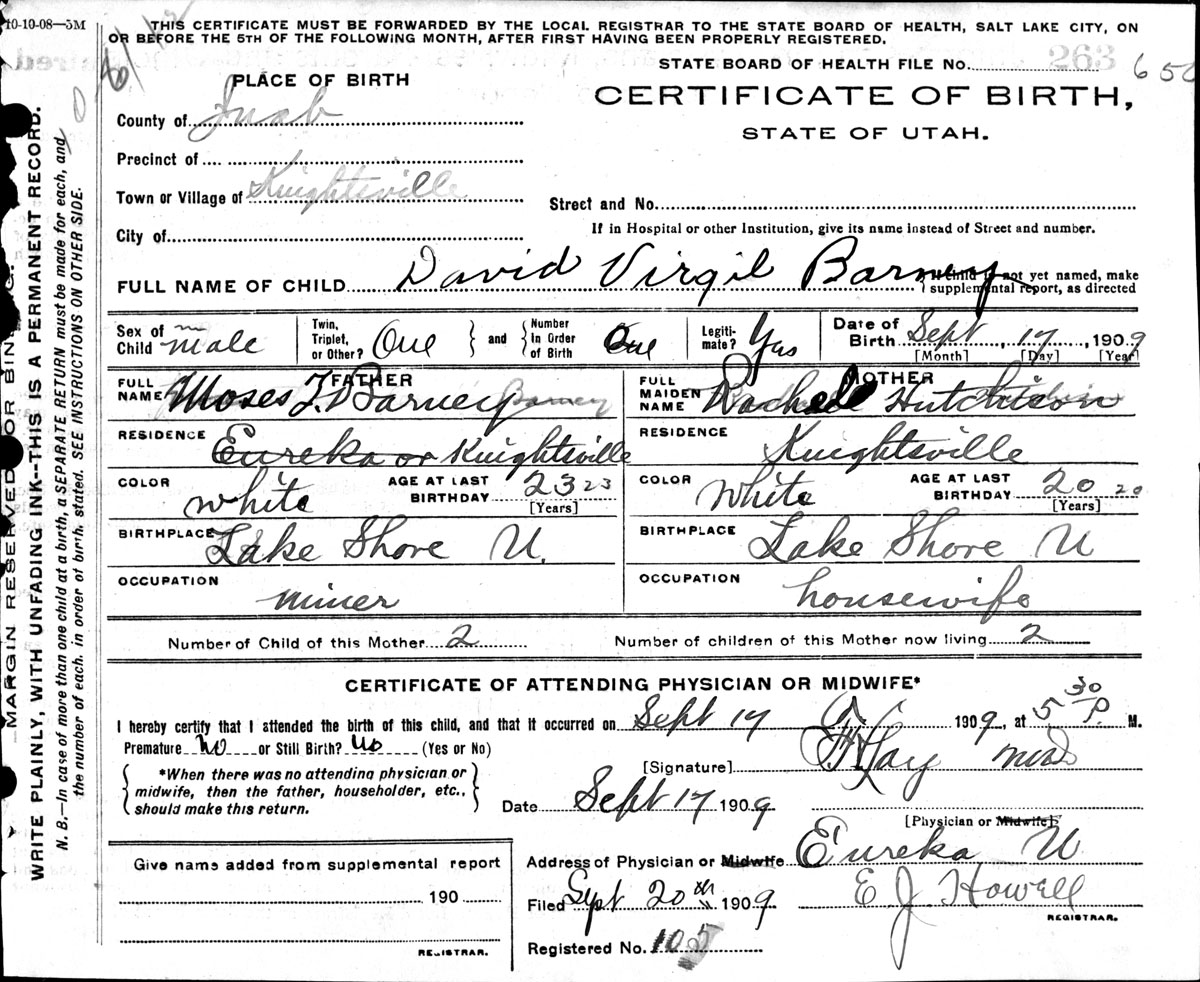 10-10-08—3M
THIS CERTIFICATE MUST BE FORWARDED BY THE LOCAL REGISTRAR TO THE STATE BOARD OF HEALTH, SALT LAKE CITY, ON
OR BEFORE THE 5TH OF THE FOLLOWING MONTH, AFTER FIRST HAVING BEEN PROPERLY REGISTERED.
STATE BOARD OF HEALTH FILE No. 263
CERTIFICATE OF BIRTH,
STATE OF UTAH.
PLACE OF BIRTH
County of Juab
Precinct of
Town or Village of Knightsville
City of
Street and No.
If in Hospital or other Institution, give its name instead of Street and number.
FULL NAME OF CHILD David Virgil Barney
If child is not yet named, make
supplemental report, as directed
Sex of Child male
Twin, Triplet, or Other? One
and Number In Order of Birth One
Legitimate? Yes
Date of Birth Sept 17, 1909
[Month] [Day] [Year]
FATHER
FULL NAME Moses F. Barney Barney
RESIDENCE Eureka or Knightsville
COLOR white
AGE AT LAST BIRTHDAY 23 23
[Years]
BIRTHPLACE Lake Shore U.
OCCUPATION miner
MOTHER
FULL MAIDEN NAME Rachel Hutchison
RESIDENCE Knightsville
COLOR White
AGE AT LAST BIRTHDAY 20 20
[Years]
BIRTHPLACE Lake Shore U
OCCUPATION housewife
Number of Child of this Mother 2
Number of children of this Mother now living 2
CERTIFICATE OF ATTENDING PHYSICIAN OR MIDWIFE*
I hereby certify that I attended the birth of this child, and that it occurred on Sept 17 1909, at 5 30 P. M.
Premature No or Still Birth? No (Yes or No)
*When there was no attending physician or
midwife, then the father, householder, etc.,
should make this return.
[Signature]
Date Sept 17 1909
[Physician or Midwife]
Address of Physician or Midwife Eureka U
Filed Sept 20th 1909
E J Howell
REGISTRAR.
Registered No. 105
Give name added from supplemental report
190
REGISTRAR.
MARGIN RESERVED FOR BINDING.
WRITE PLAINLY, WITH UNFADING INK--THIS IS A PERMANENT RECORD.
N. B.—In case of more than one child at a birth, a SEPARATE RETURN must be made for each, and
the number of each, in order of birth, stated. SEE INSTRUCTIONS ON OTHER SIDE.